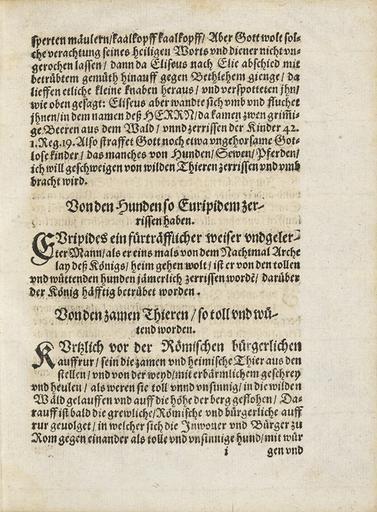 sperten mäulern/kaalkopff kaalkopff/ Aber Gott wolt sol-
che verachtung seines heiligen Worts vnd diener nicht vn-
gerochen lassen/ dann da Eliseus nach Elie abschied mit
betrübtem gemüth hinauff gegen Bethlehem gienge/ da
lieffen etliche kleine knaben heraus/ vnd verspotteten jhn/
wie oben gesagt: Eliseus aber wandte sich vmb vnd fluchet
jhnen/ in dem namen deß HERRN/ da kamen zwen grim̃i-
ge Beeren aus dem Wald/ vnnd zerrissen der Kinder 42.
1. Reg. 19. Also straffet Gott noch etwa vngehorsame Gott-
lose kinder/ das manches von Hunden/ Sewen/ Pferden/
ich wil geschweigen von wilden Thieren zerrissen vnd vmb
bracht wird.
Von den Hunden so Euripidem zer-
rissen haben.
EVripides ein fürträfflicher weiser vnd geler-
ter Mann/ als er eins mals von dem Nachtmal Arche
lay deß Königs/ heim gehen wolt/ ist er von den tollen
vnd wüttenden hunden jämerlich zerrissen wordẽ/ darüber
der König häfftig betrübet worden.
Von den zamen Thieren/ so toll vnd wü-
tend worden.
KVrtzlich vor der Römischen bürgerlichen
auffrur/ sein die zamen vnd heimische Thier aus den
stellen/ vnd von der weyd/ mit erbärmlichem geschrey
vnd heulen/ als weren sie toll vnnd vnsinnig/ in die wilden
Wäld gelauffen vnd auff die höhe der berg geflohen/ Da-
rauff ist bald die grewliche/ Römische vnd bürgerliche auff
rur geuolget/ in welcher sich die Inwoner vnd Bürger zu
Rom gegen einander als tolle vnd vnsinnige hund/ mit wür
i gen vnd